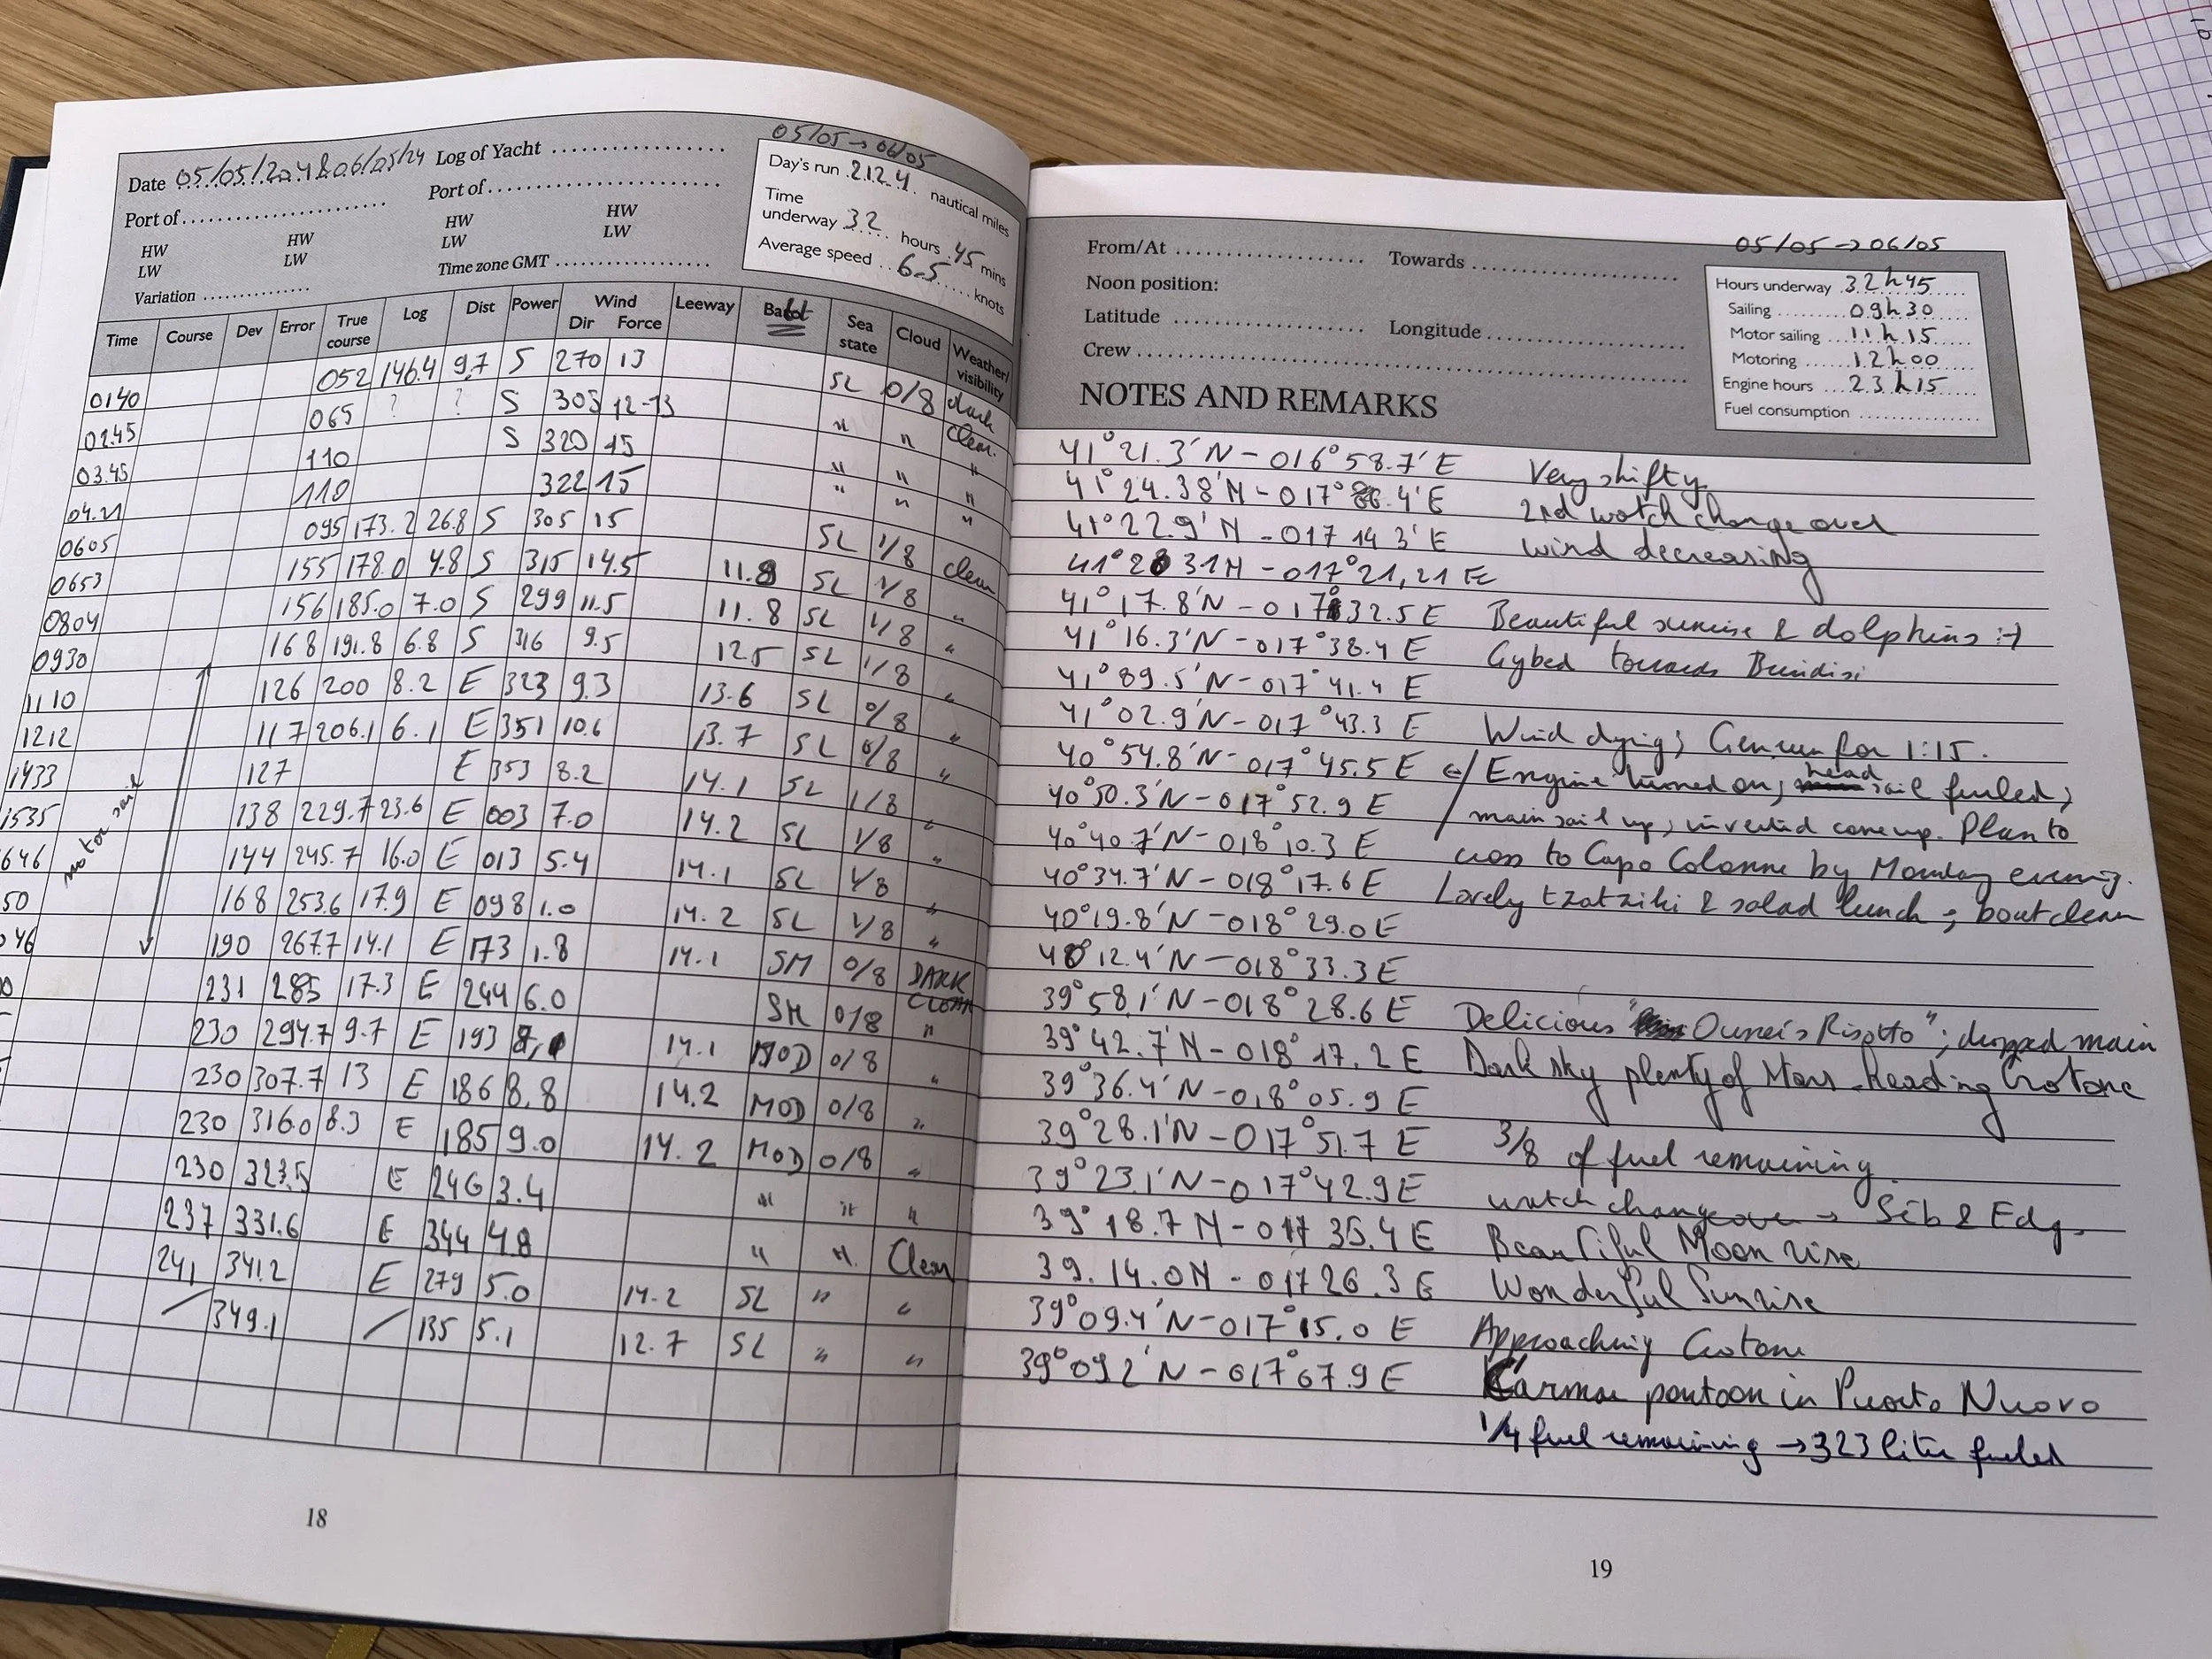 Date 05/05/24 & 06/05/24 Log of Yacht
Port of Port of
HW HW HW HW
LW LW LW LW
Variation Time zone GMT
05/05 → 06/05
Day's run 212.4 nautical miles
Time underway 32 hours 45 mins
Average speed 6.5 knots
Time Course Dev Error True course Log Dist Power Wind Dir Force Leeway Sea state Cloud Weather/visibility
0140 052 146.4 9.7 S 270 13 SL 0/8 dark clear.
0245 065 ? ? S 305 12-13 " " "
03.45 110 S 320 15 " " "
04.21 110 322 15 " " "
0605 095 173.2 26.8 S 305 15 SL 1/8 clear
0653 155 178.0 4.8 S 315 14.5 11.8 SL 1/8 "
0804 156 185.0 7.0 S 299 11.5 11.8 SL 1/8 "
0930 168 191.8 6.8 S 316 9.5 12.5 SL 1/8 "
1110 126 200 8.2 E 323 9.3 13.6 SL 0/8 "
1212 117 206.1 6.1 E 351 10.6 13.7 SL 0/8 "
1433 127 E 353 8.2 14.1 SL 1/8 "
1535 138 229.7 23.6 E 003 7.0 14.2 SL 1/8 "
646 144 245.7 16.0 E 013 5.4 14.1 SL 1/8 "
50 168 253.6 17.9 E 098 1.0 14.2 SL 1/8 "
46 190 267.7 14.1 E 173 1.8 14.1 SM 0/8 DARK Clear
231 285 17.3 E 244 6.0 SM 0/8 "
230 294.7 9.7 E 193 14.1 MOD 0/8 "
230 307.7 13 E 186 8.8 14.2 MOD 0/8 "
230 316.0 8.3 E 185 9.0 14.2 MOD 0/8 "
230 323.5 E 246 3.4 " " "
237 331.6 E 344 4.8 " " Clear
241 341.2 E 279 5.0 14.2 SL " "
/ 349.1 / 135 5.1 12.7 SL " "
motor sail
18
From/At Towards
Noon position:
Latitude Longitude
Crew
NOTES AND REMARKS
05/05 → 06/05
Hours underway 32h45
Sailing 09h30
Motor sailing 11h15
Motoring 12h00
Engine hours 23h15
Fuel consumption
41°21.3'N - 016°58.7'E Very shifty
41°24.38'N - 017° .4'E 2nd watch change over
41°22.9'N - 017 14 3'E wind decreasing
41°20 31N - 017°21,21 E
41°17.8'N - 017°32.5 E Beautiful sunrise & dolphins :-)
41°16.3'N - 017°38.4 E Gybed towards Brindisi
41°89.5'N - 017°41.4 E
41°02.9'N - 017°43.3 E Wind dying; Gen run for 1:15.
40°54.8'N - 017°45.5 E ←/ Engine turned on; head sail furled;
40°50.3'N - 017°52.9 E / main sail up; inverted cone up. Plan to
40°40.7'N - 018°10.3 E cross to Capo Colonne by Monday evening.
40°34.7'N - 018°17.6 E Lovely tzatziki & salad lunch; boat clean
40°19.8'N - 018°29.0 E
40°12.4'N - 018°33.3 E
39°58.1'N - 018°28.6 E Delicious "Owner's Risotto"; dropped main
39°42.7'N - 018°17.2 E Dark sky plenty of stars - heading Crotone
39°36.4'N - 018°05.9 E
39°28.1'N - 017°51.7 E 3/8 of fuel remaining
39°23.1'N - 017°42.9 E watch changeover → Seb & Edg.
39°18.7 N - 017 35.4 E Beautiful Moon rise
39.14.0N - 017 26.3 E Wonderful Sunrise
39°09.4'N - 017°15.0 E Approaching Crotone
39°09.2'N - 017°07.9 E Karma pontoon in Puorto Nuovo
1/4 fuel remaining → 323 liter fueled
19